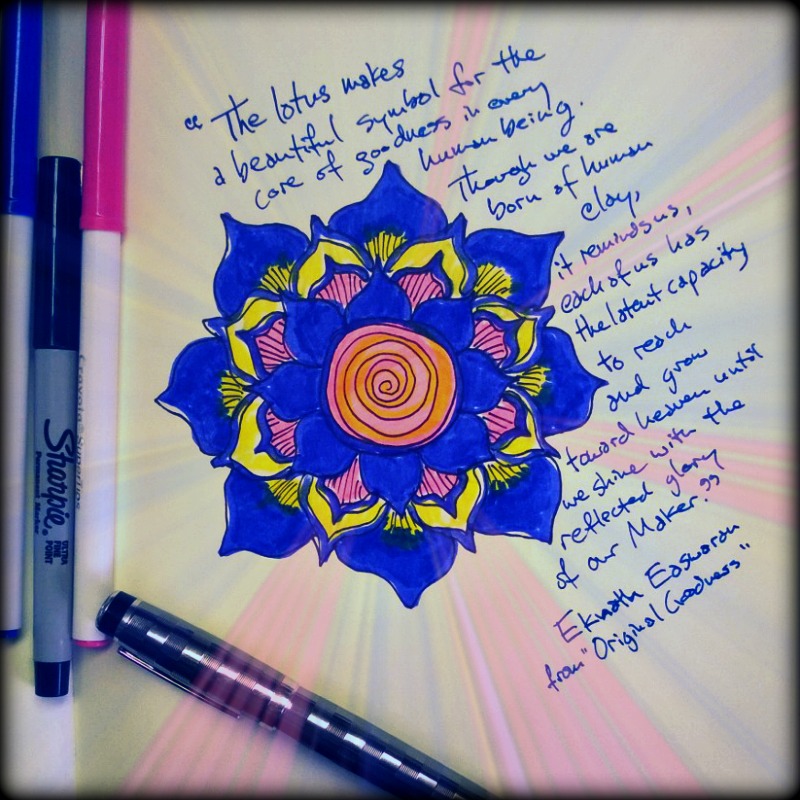 “The lotus makes
a beautiful symbol for the
core of goodness in every
human being.
Though we are
born of human
clay,
it reminds us,
each of us has
the latent capacity
to reach
and grow
toward heaven until
we shine with the
reflected glory
of our Maker.”
Eknath Easwaran
from "Original Goodness"
Sharpie.
Permanent Marker
ULTRA
FINE
POINT
Crayola SuperTips